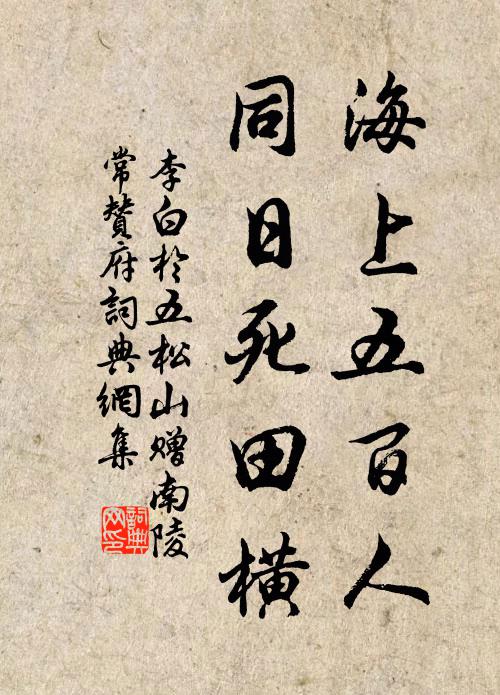 海上五百人
同日死田橫
李白於五松山贈南陵
常贊府詞典網集
詞典
网印